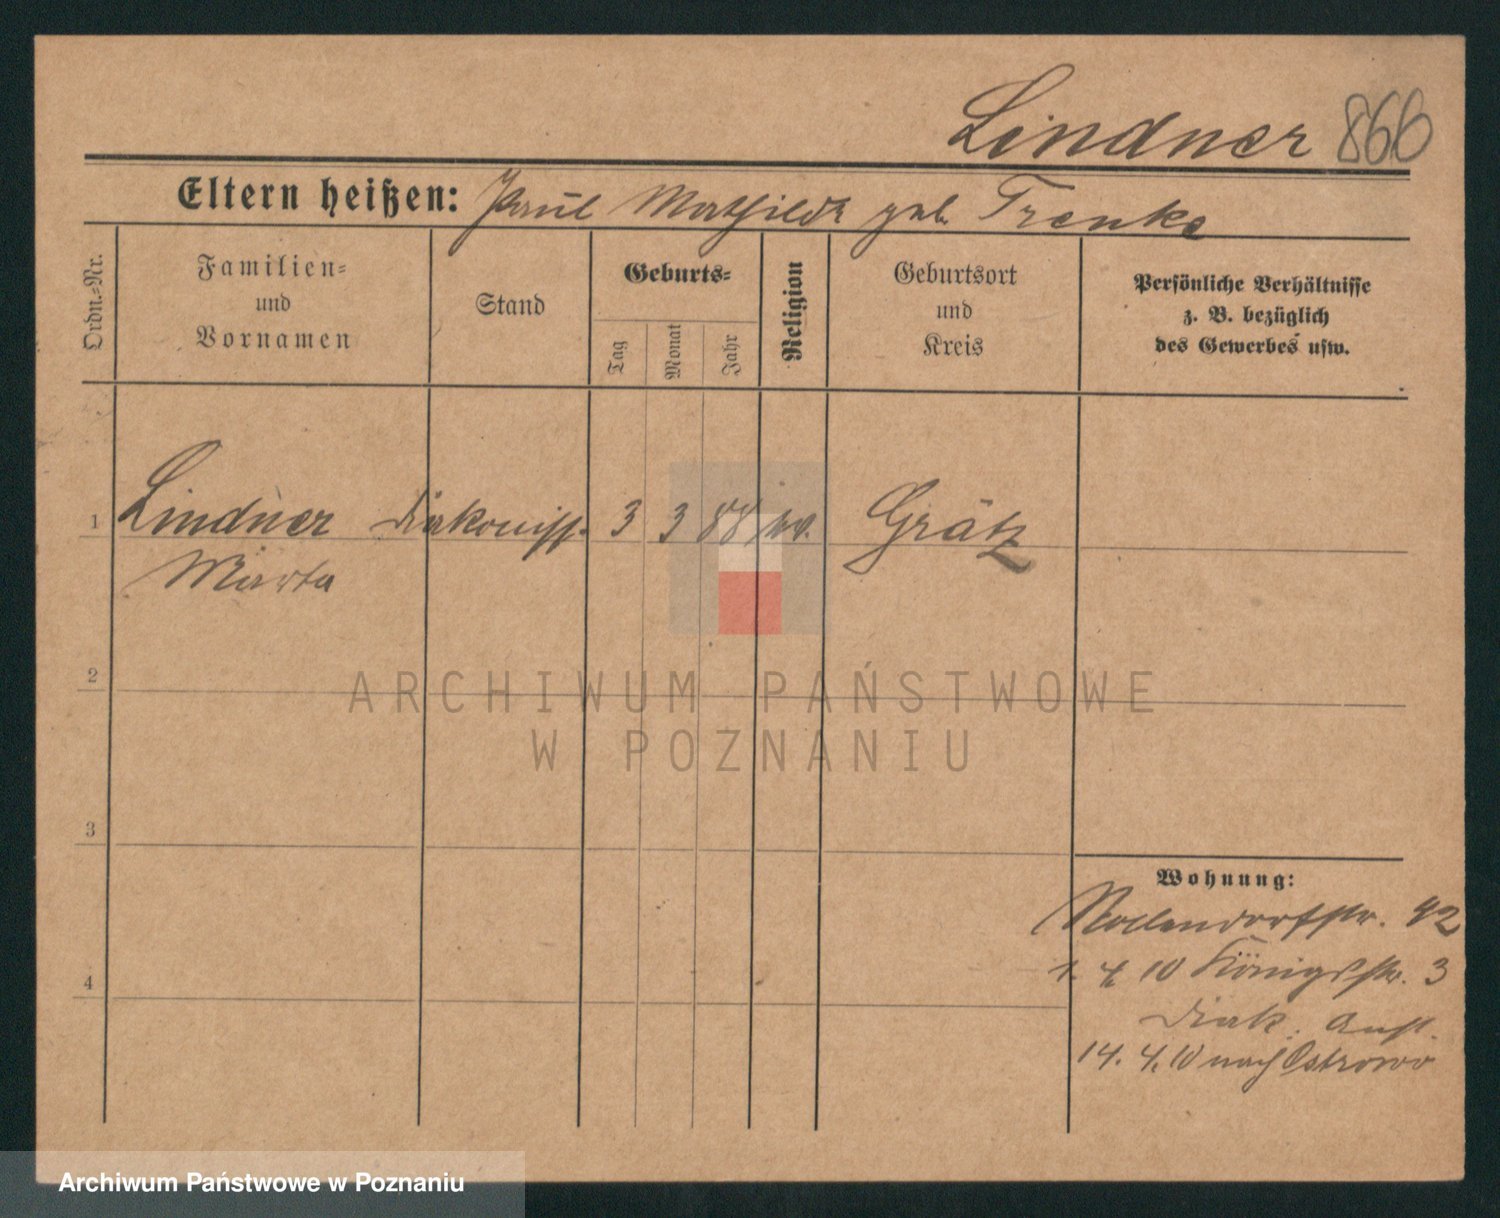 Lindner 866
Eltern heißen: Paul Mathilde geb. Trenke
Ordn.-Nr.
Familien- und Vornamen
Stand
Geburts-
Tag
Monat
Jahr
Religion
Geburtsort und Kreis
Persönliche Verhältnisse
z. B. bezüglich
des Gewerbes usw.
1 Lindner Diakoniss. 3 3 88 ev. Grätz
Marta
2
3
4
Wohnung:
Nollendorfstr. 42
1. 4. 10 Königstr. 3
Diak. Anst.
14. 4. 10 nach Ostrowo
ARCHIWUM PAŃSTWOWE
W POZNANIU
Archiwum Państwowe w Poznaniu